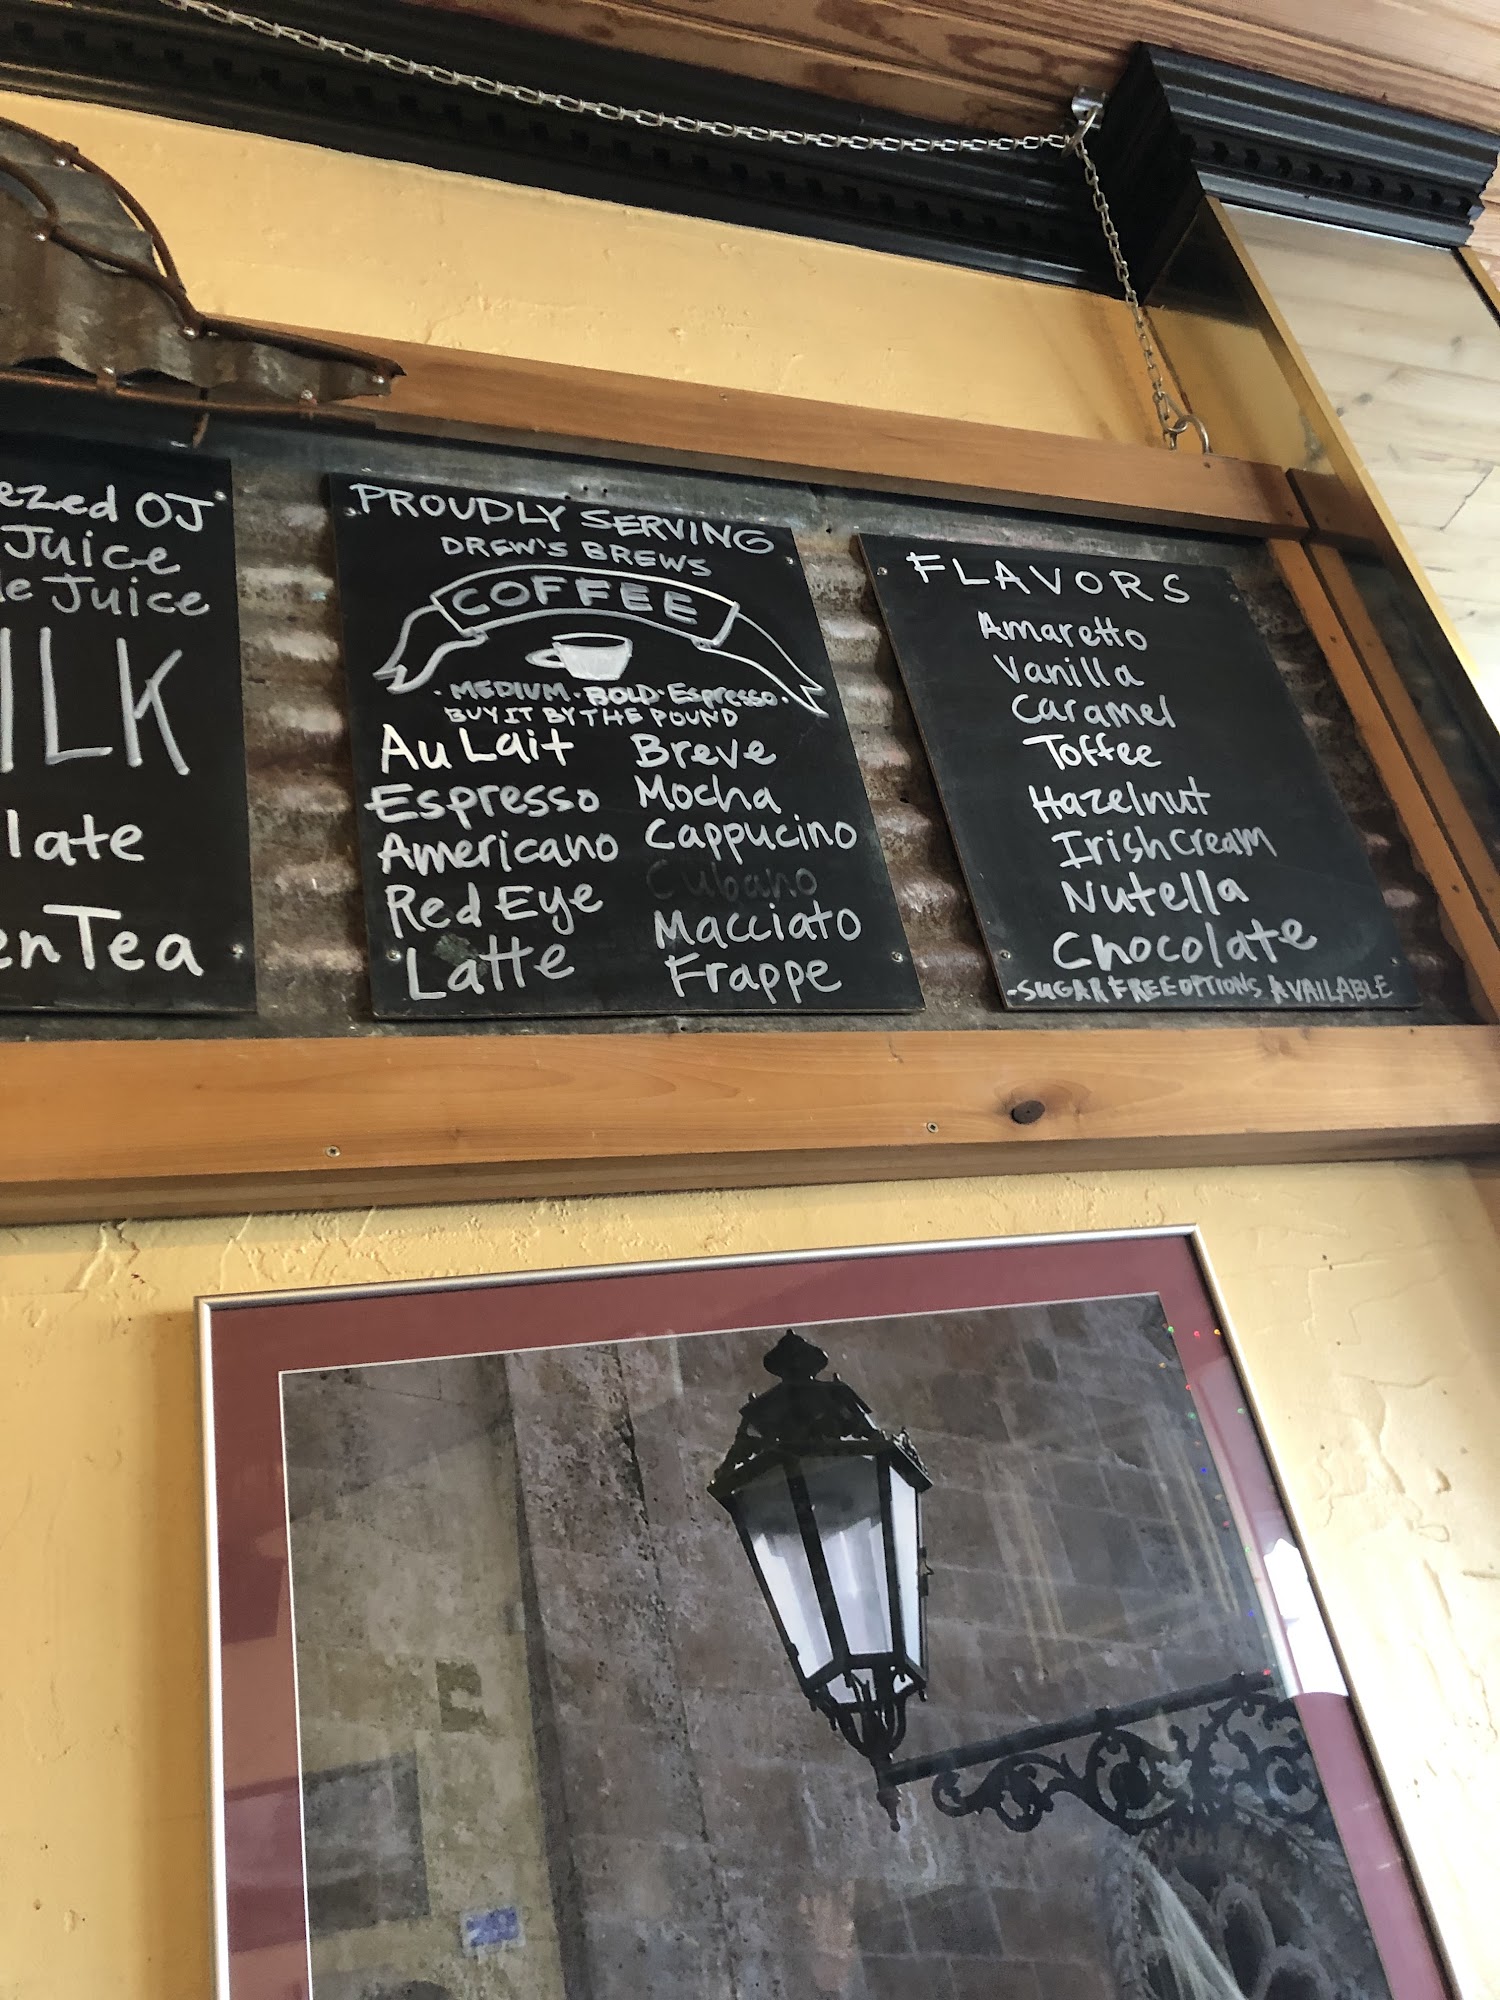 ezed OJ
Juice
le Juice
ILK
late
en Tea
PROUDLY SERVING
DREW'S BREWS
COFFEE
· MEDIUM · BOLD · Espresso ·
BUY IT BY THE POUND
Au Lait
Espresso
Americano
Red Eye
Latte
Breve
Mocha
Cappucino
Cubano
Macciato
Frappe
FLAVORS
Amaretto
Vanilla
Caramel
Toffee
Hazelnut
Irish Cream
Nutella
Chocolate
-SUGAR FREE OPTIONS AVAILABLE